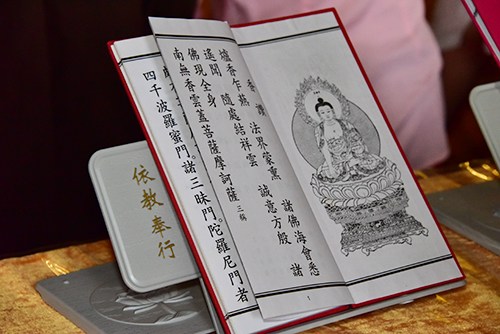 香讚
爐香乍熱　法界蒙熏　諸佛海會悉
遙聞　隨處結祥雲　誠意方殷　諸
佛現全身
南無香雲蓋菩薩摩訶薩 三稱
1
四千波羅蜜門。諸三昧門。陀羅尼門者
依教奉行